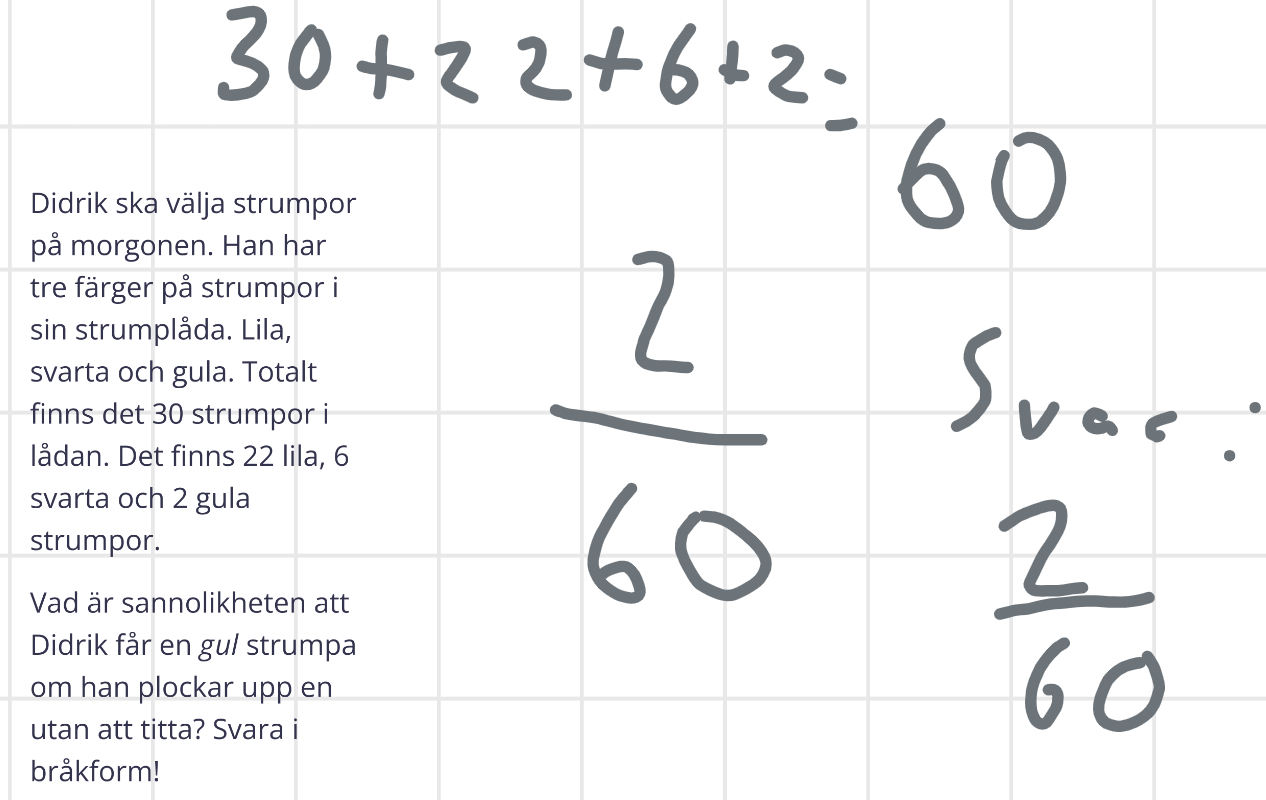 30+22+6+2=
60
Didrik ska välja strumpor
på morgonen. Han har
tre färger på strumpor i
sin strumplåda. Lila,
svarta och gula. Totalt
finns det 30 strumpor i
lådan. Det finns 22 lila, 6
svarta och 2 gula
strumpor.
Vad är sannolikheten att
Didrik får en gul strumpa
om han plockar upp en
utan att titta? Svara i
bråkform!
2
60
Svar:
2
60